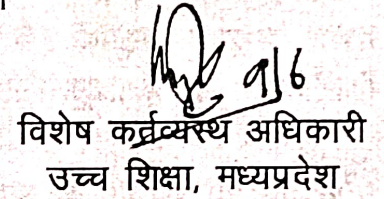 9/6
विशेष कर्त्तव्यस्थ अधिकारी
उच्च शिक्षा, मध्यप्रदेश